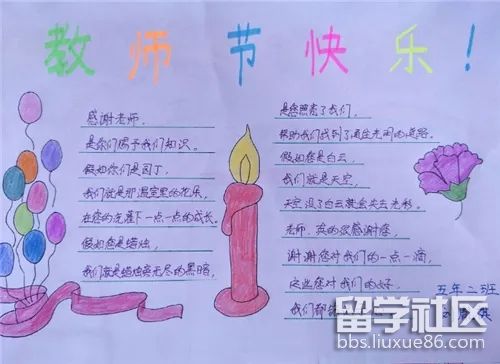 教师节快乐！
感谢老师，
是你们赐予我们知识。
假如你们是园丁，
我们就是那温室里的花朵，
在您的庇护下一点一点的成长。
假如您是蜡烛，
我们就是蜡烛旁无尽的黑暗，
是您照亮了我们，
帮助我们找到了通往光明的道路。
假如您是白云，
我们就是天空，
天空没了白云就会失去光彩。
老师，我的很感谢您，
谢谢您对我们的一点一滴，
这些您对我们的好，
我们都
五年二班
留学社区
bbs.liuxue86.com